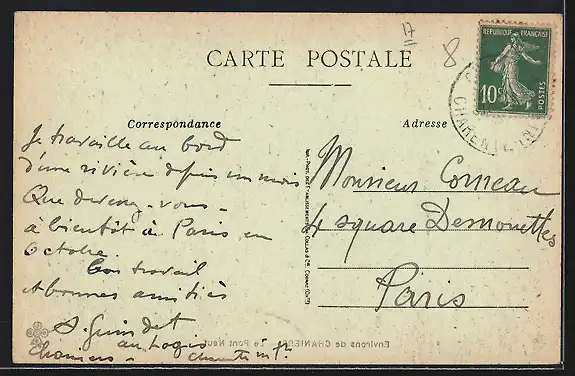 17
8
CARTE POSTALE
REPUBLIQUE FRANÇAISE
10c
POSTES
CHARENTE INF
Correspondance
Adresse
Je travaille au bord
d'une rivière depuis un mois
Que devenez-vous -
à bientôt à Paris en
Octobre.
Bon travail
et bonnes amitiés
Chaniers -
Monsieur Corneau
4 square Desnouettes
Paris
Environs de CHANIERS - Le Pont Neuf